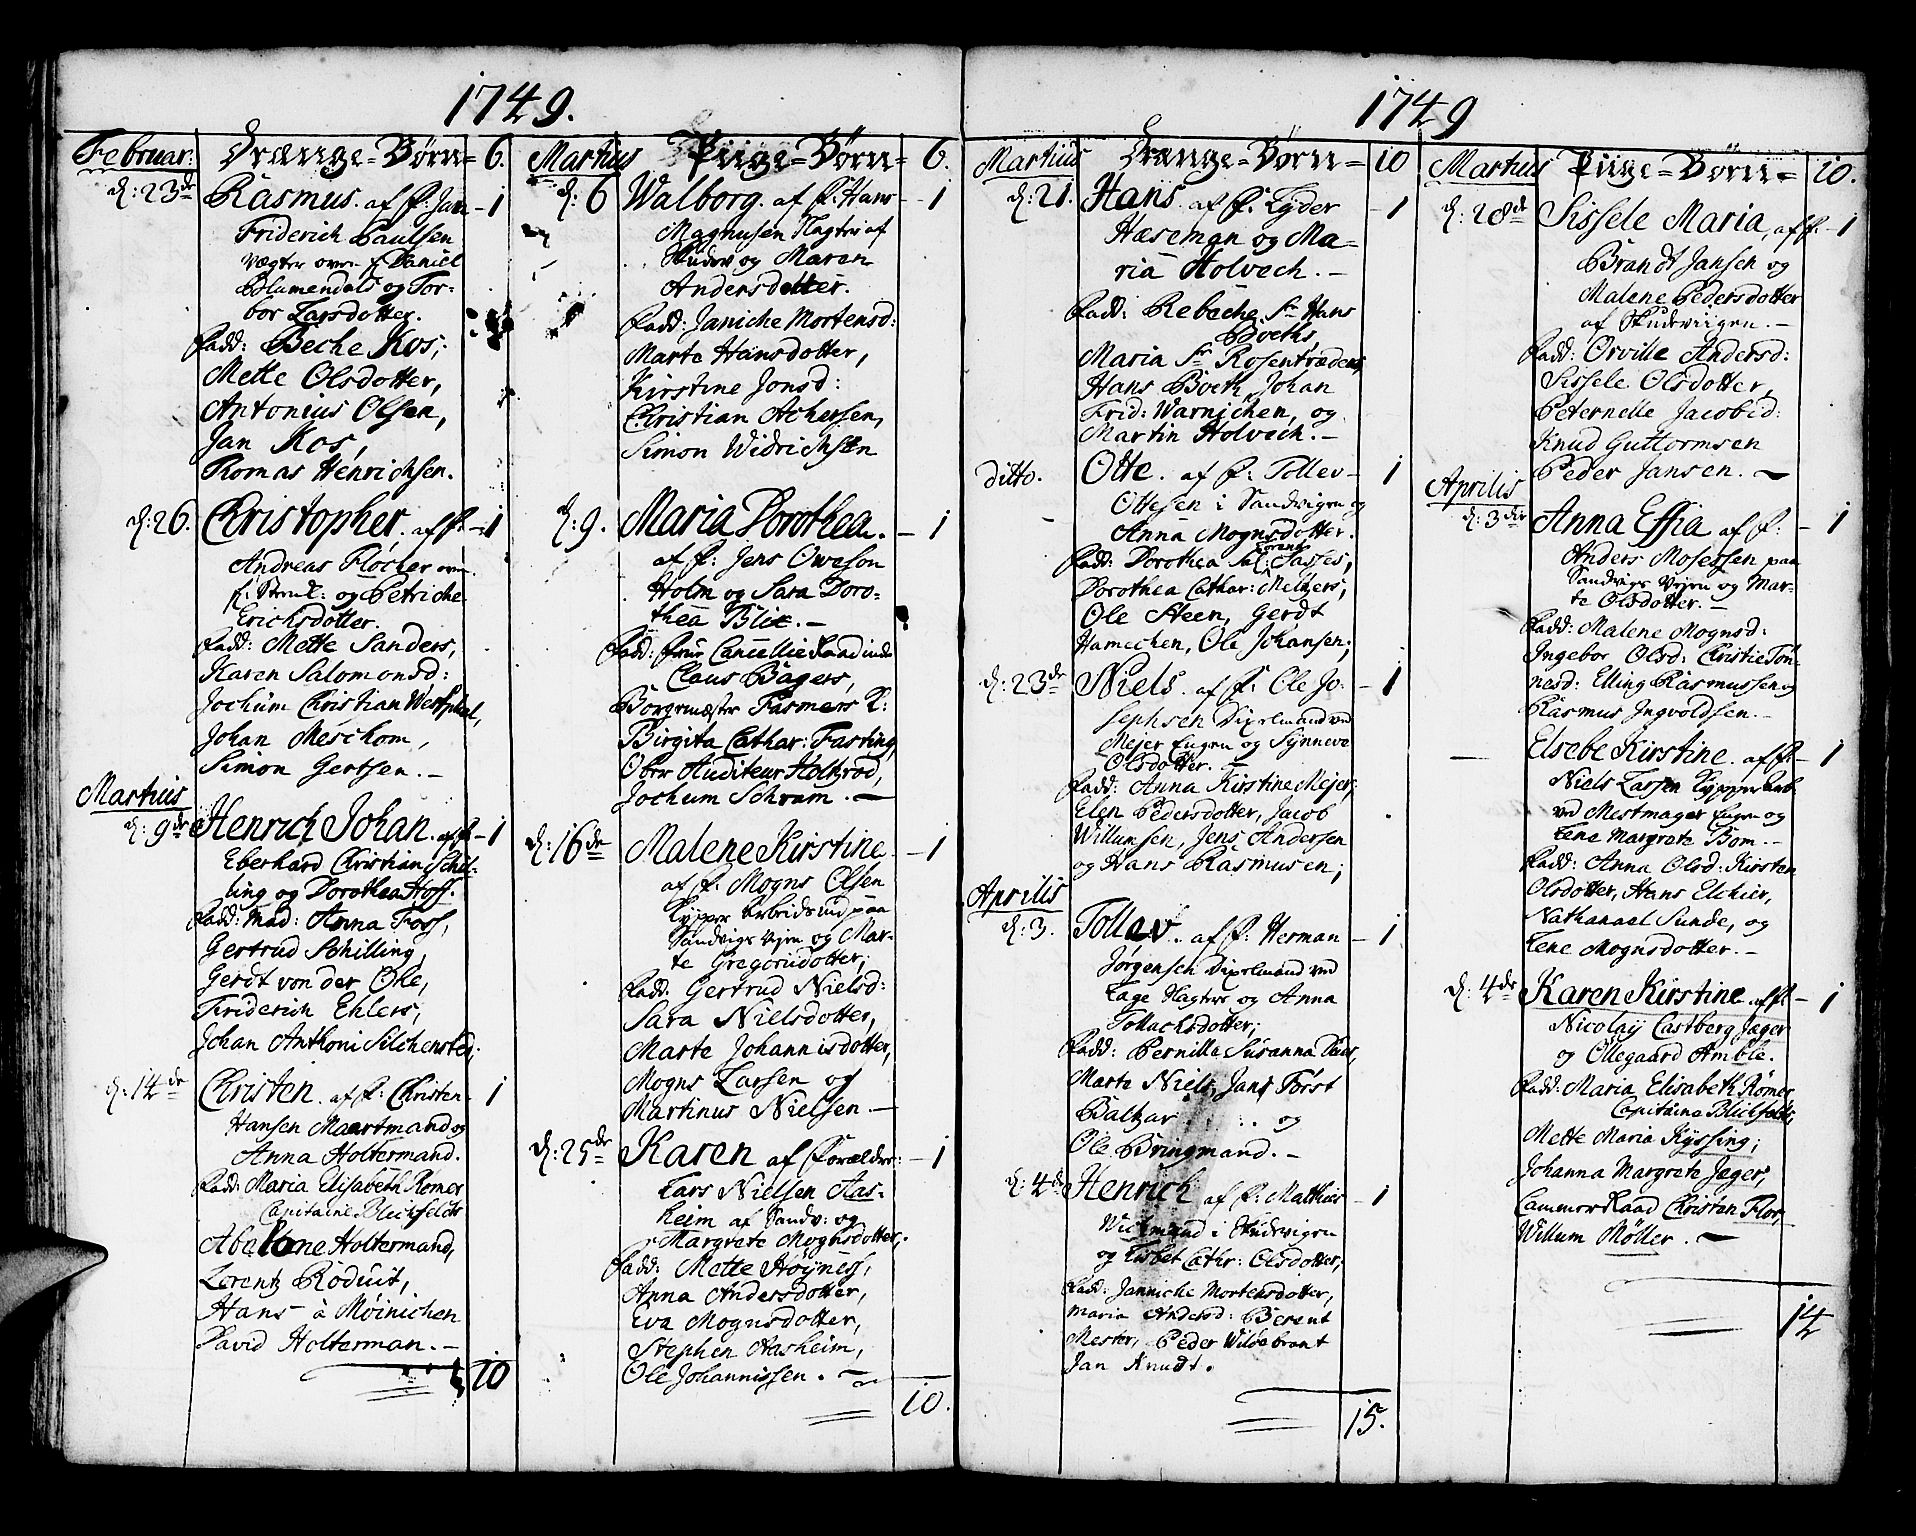 1749.
Februar: Drænge=Børn= 6.
d: 23de Rasmus. af f: Jan — 1
Friderich Paulsen
Vægter over f. Daniel
Blumendals og Tor-
bor Larsdotter.
Fadd: Beche Kos;
Mette Olsdotter,
Antonius Olsen,
Jan Kos,
Romas Henrichsen.
d: 26. Christopher. af f: — 1
Andreas Fløcher
og Petriche
Ericksdotter.
Fadd: Mette Sanders,
Karen Salomonsd:
Jochum Christian Westphal,
Johan Meschom,
Simon Gertsen. —
Martius
d: 9de Henrich Johan. af f: — 1
Eberhard Christian Schil-
ling og Dorothea Hoff.
Fadd: Mad: Anna Foss,
Gertrud Schilling,
Gerdt von der Ohe,
Friderich Ehlers,
Johan Anthoni Silchensted;
d: 14de Christen. af f: Christen 1
Hansen Maartmand og
Anna Holtermand.
Fadd: Maria Elisabeth Rømer
Capitaine Blichfeldts
Abelone Holtermand,
Lorentz Roduit,
Hans à Møinichen
David Holterman. —
10
Martius Piige=Børn= 6.
d: 6 Walborg. af f: Hans — 1
Magnusen Flagtres af
Skudev og Maren
Andersdotter.
Fadd: Janiche Mortensd:
Marte Hansdotter,
Kirstine Jonsd:
Christian Achersen,
Simon Widrichsen
d: 9. Maria Dorothea. — 1
af f: Jens Oweson
Holm og Sara Doro-
thea Blix. —
Fadd: frue Cancellie Raadinde
Claus Bagers,
Borgemæster Fasmers K:
Birgita Cathar: Fasting,
Ober Auditeur Holtzrod,
Jochum Schram. —
d: 16de Malene Kirstine — 1
af f: Mogns Olsen
Kypper Arbeidsmd paa
Sandvigs Vejen og Mar-
te Gregoriidotter;
Fadd: Gertrud Nielsd:
Sara Nielsdotter,
Marte Johannisdotter,
Mogns Larsen og
Martinus Nielsen —
d: 25de Karen af Forældre: — 1
Lars Nielsen Aas-
heim af Sandv: og
Margrete Mognsdotter;
Fadd: Mette Høynes,
Anna Andersdotter,
Eva Mognsdotter,
Stephen Aasheim,
Ole Johannissen. —
10.
1749
Martius Drænge=Børn= 10
d: 21. Hans. af f: Lyder — 1
Hæseman og Ma=
ria Holvech. —
Fadd: Rebeche Sr Hans
Boeths,
Maria Sr Rosentrædens
Hans Boeth, Johan
Frid: Warnichen, og
Martin Holvech. —
ditto. Otte. af f: Tollev — 1
Ottesen i Sandvigen og
Anna Mognsdotter.
Fadd: Dorothea Sal: Lorentz Sasses,
Dorothea Cathar: Meltzers,
Ole Steen, Gerdt
Hamechen, Ole Johansen;
d: 23de Niels. af f: Ole Jo: — 1
sephsen Dixelmand ved
Mejer Engen og Synneve
Olsdotter. —
Fadd: Anna Kirstine Mejer;
Elen Pedersdotter, Jacob
Willumsen, Jens Andersen
og Hans Rasmusen;
Aprilis
d: 3. Tollev. af f: Herman — 1
Jørgensen Dixelmand ved
Lage Flagtres og Anna
Tollachsdotter;
Fadd: Pernilla Susanna Dans,
Marte Niels, Jans Torst
Baltzar . . . . og
Ole Bringmand. —
d: 4de Henrich af f: Mathias — 1
Wichmand i Skudevigen
og Lisbet Cathr: Olsdotter;
Fadd: Jannicke Mortensdotter,
Maria Andersd: Berent
Mester, Peder Wildebrant
Jan Knudt.
15.
Martius Piige=Børn= 10.
d: 28de Sissele Maria, af f: — 1
Brandt Jansen og
Malene Pedersdotter
af Skudeviigen. —
Fadd: Orville Andersd:
Sissele Olsdotter,
Peternelle Jacobsd:
Knud Guttormsen
Peder Jansen. —
Aprilis
d: 3die Anna Effia af f: — 1
Anders Mosessen paa
Sandvigs Vejen og Mar-
te Olsdotter. —
Fadd: Malene Mognsd:
Ingebor Olsd: Christie Ton-
nesd: Elling Rasmussen og
Rasmus Ingvoldsen. —
— Elsebe Kirstine. af f: — 1
Niels Larsen Kypper Arb
ved Mestmager Engen og
Lene Margrete Bom. —
Fadd: Anna Olsd: Kirsten
Olsdotter, Hans Elchier,
Nathanael Sunde, og
Lene Mognsdotter. —
d: 4de Karen Kirstine af f: — 1
Nicolaÿ Castberg Jæger
og Ollegaard Amble.
Fadd: Maria Elisabeth Rømer
Capitaine Blichfeldts,
Mette Maria Kyssing;
Johanna Margrete Jæger;
Cammer Raad Christen Flor,
Willum Møller. —
14